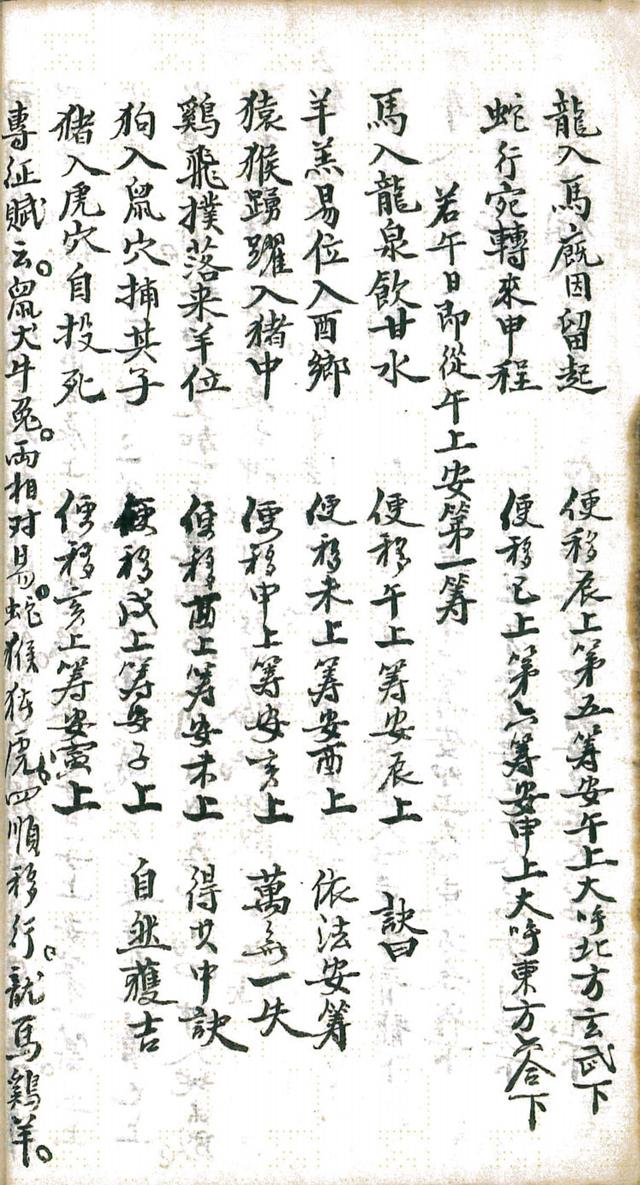 龍入馬廐因留起 便移辰上第五筹安午上大呼北方玄武下
蛇行宛轉來申程 便移巳上第六筹安申上大呼東方六合下
若午日即從午上安第一筹
馬入龍泉飲甘水 便移午上筹安辰上 訣曰
羊羔易位入酉鄉 便移未上筹安酉上 依法安筹
猿猴踴躍入猪中 便移申上筹安亥上 萬無一失
鷄飛撲落来羊位 便移酉上筹安未上 得其中訣
狗入鼠穴捕其子 便移戌上筹安子上 自然獲吉
猪入虎穴自投死 便移亥上筹安寅上
專征賦云。鼠犬牛兔。两相对易。蛇猴猪虎。四順移行。龍馬鷄羊。